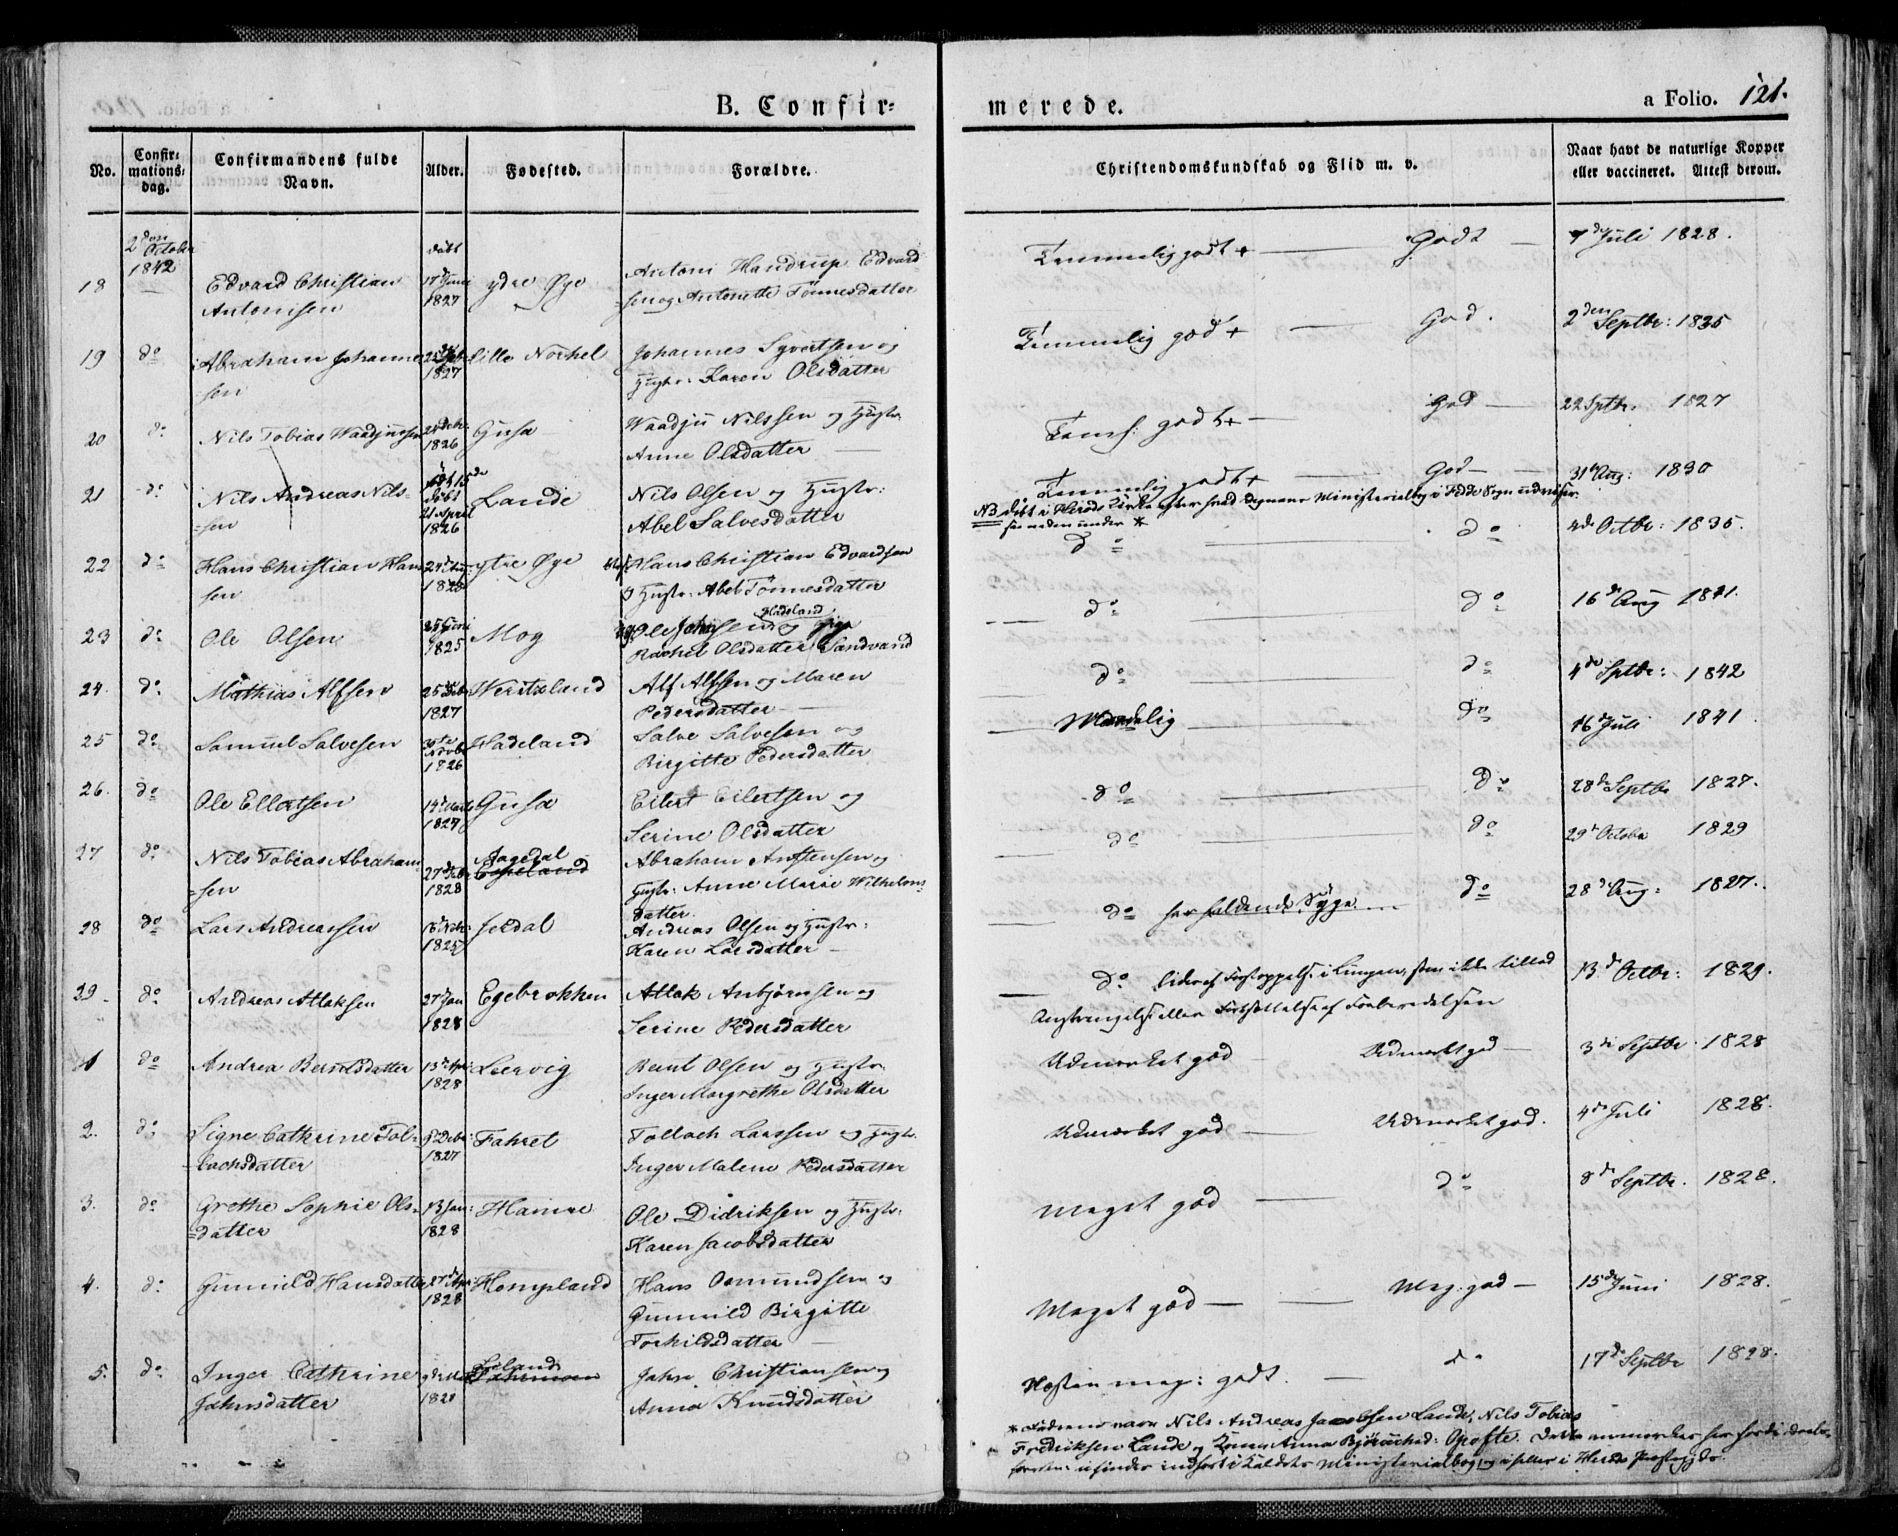 B. Confir=
merede.
a Folio. 121.
No.
Confir=
mations=
dag.
Confirmandens fulde
Navn.
Alder.
Fødested.
Forældre.
Christendomskundskab og Flid m. v.
Naar havt de naturlige Kopper
eller vaccineret. Attest derom.
2den October
1842
18 Edvard Christian
Antonisen
døbt
17d Juni
1827
ydre Øye
Antoni Handrup Edvard
=sen og Antonette Tönnesdatter
Temmelig godt + Godt 7d Juli 1828.
19 do Abraham Johanne
=sen
1827
Lille Norhel
Johannes Syvertsen og
Hustr: Karen Olsdatter
Temmelig god + God. 2den Septbr: 1835
20 do Nils Tobias Waadjussen
1826
Gusa
Waadju Nilssen og Hustr.
Anne Olsdatter
Tems: godt + God 22 Sptbr: 1827
21 do Nils Andreas Nils=
=sen
døbt
21 April
1826
Lande
Nils Olsen og Hustr:
Abel Salvesdatter
Temmelig godt + God 31 Aug: 1830
NB døbt i Herads Kirke efter hvad Degnens Ministerialbog i Fede Sogn udviser
see neden under *
22 do Hans Christian Han
sen
1828
ytre Øye
Hans Christian Edvardsen
og Hustr: Abel Tönnesdatter
do do 4de Octbr: 1835.
23 do Ole Olsen
25 Juni
1825
Mog
Ole Johnsen og
Hadeland
Rachel Olsdatter Sandvand
do do 16d Aug 1841.
24. do Mathias Alfsen
1827
Werstaland
Alf Alfsen og Maren
Pedersdatter
do do 4de Sptbr: 1842
25 do Samuel Salvesen
30te Novbr
1826
Hadeland
Salve Salvesen og
Birgitte Pedersdatter
Maadelig do 16d Juli 1841.
26. do Ole Ellertsen
1827
Gusa
Eilert Eilertsen og
Serine Olsdatter
do do 28d Septbr 1827.
27 do Nils Tobias Abraham=
=sen
1828
Aagedal
Abraham Anstensen og
Hustr: Anne Marie Wilhelms=
datter.
do do 29d Octobr 1829
28 do Lars Andreassen
1825
Jerdal
Andreas Olsen og Hustr:
Karen Larsdatter
do har faldende Syge. do 28d Aug: 1827.
29. do Andreas Atlaksen
27 Jan
1828
Egebrokken
Atlak Anbjörnsen og
Serine Pedersdatter
do lider af Forstoppelse i Lungen, som ikke tillod
Anstrengelse eller Fortsættelse af Forberedelsen
13d Octbr: 1829.
1 do Andrea Berntsdatter
13d Apr
1828
Leervig
Bernt Olsen og Hustr.
Inger Margrethe Olsdatter
Udmærket god Udmærket god 3di Septbr. 1828
2. do Signe Cathrine Tol=
=lachsdatter
1827
Fahret
Tollach Larssen og Hustr.
Inger Malene Pedersdatter
Udmærket god Udmærket god. 4de Juli 1828.
3. do Grethe Sophie Ols=
=datter
13 Jan:
1828
Hamre
Ole Didriksen og Hustr:
Karen Jacobsdatter
Meget god do 8d Septbr. 1828.
4. do Gunnild Hansdatter
27d Apr
1828
Hompland
Hans Osmundsen og
Gunnild Birgitte
Torkildsdatter
Meget god Meg: god 15d Juni 1828.
5. do Inger Cathrine
Jahnsdatter
1828
Leland
Jahn Christiansen og
Anna Knudsdatter
Næsten meg: godt. do 17d Septbr 1828.
* Fødenes navn Nils Andreas Jacobsen Lande, Nils Tobias
Fredriksen Lande og Konen Anna Björnsted: Opofte. Dette anmærkes her fordi
ei findes indført i Kaldets Ministerialbog, og ei heller i Herads Præstegjeld.